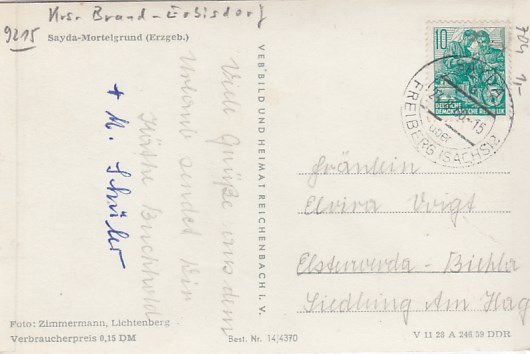 Krs. Brand-Erbisdorf
9215
Sayda-Mortelgrund (Erzgeb.)
Viele Grüße aus dem
Urlaub sendet Dir
Käthe Buchhold
+ M. Schüler
Foto: Zimmermann, Lichtenberg
Verbraucherpreis 0,15 DM
VEB BILD UND HEIMAT REICHENBACH I. V.
Best. Nr. 14/4370
10
DEUTSCHE
DEMOKRATISCHE REPUBLIK
SAYDA
über
FREIBERG (SACHS)
704 1,-
Fräulein
Elvira Voigt
Elsterwerda-Biehla
Siedlung Am Hag
V 11 28 A 246/59 DDR